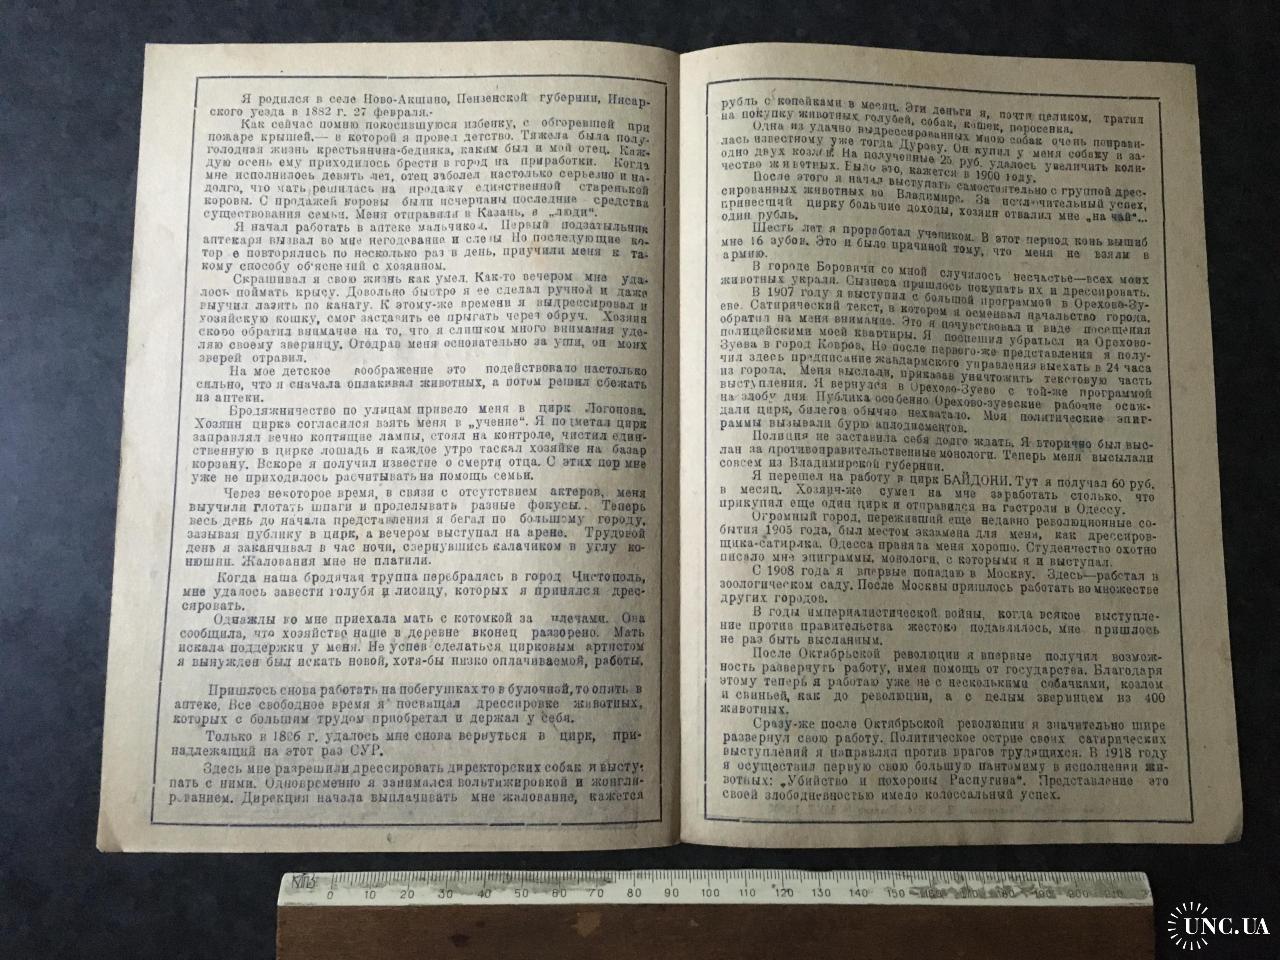 Я родился в селе Ново-Акшино, Пензенской губернии, Инсар-
ского уезда в 1882 г. 27 февраля.
Как сейчас помню покосившуюся избенку, с обгоревшей при
пожаре крышей,— в которой я провел детство. Тяжела была полу-
голодная жизнь крестьянина-бедняка, каким был и мой отец. Каж-
дую осень ему приходилось брести в город на приработки. Когда
мне исполнилось девять лет, отец заболел настолько серьезно и на-
долго, что мать решилась на продажу единственной старенькой
коровы. С продажей коровы были исчерпаны последние средства
существования семьи. Меня отправили в Казань, в „люди“.
Я начал работать в аптеке мальчиком. Первый подзатыльник
аптекаря вызвал во мне негодование и слезы Но последующие ко-
тор е повторялись по несколько раз в день, приучили меня к та-
кому способу об'яснений с хозяином.
Скрашивал я свою жизнь как умел. Как-то вечером мне уда-
лось поймать крысу. Довольно быстро я ее сделал ручной и даже
выучил лазить по канату. К этому-же времени я выдрессировал и
хозяйскую кошку, смог заставить ее прыгать через обруч. Хозяин
скоро обратил внимание на то, что я слишком много внимания уде-
ляю своему зверинцу. Отодрав меня основательно за уши, он моих
зверей отравил.
На мое детское воображение это подействовало настолько
сильно, что я сначала оплакивал животных, а потом решил сбежать
из аптеки.
Бродяжничество по улицам привело меня в цирк Логонова.
Хозяин цирка согласился взять меня в „учение“. Я подметал цирк
заправлял вечно коптящие лампы, стоял на контроле, чистил един-
ственную в цирке лошадь и каждое утро таскал хозяйке на базар
корзину. Вскоре я получил известие о смерти отца. С этих пор мне
уже не приходилось расчитывать на помощь семьи.
Через некоторое время, в связи с отсутствием актеров, меня
выучили глотать шпаги и проделывать разные фокусы.. Теперь
весь день до начала представления я бегал по большому городу,
зазывая публику в цирк, а вечером выступал на арене. Трудовой
день я заканчивал в час ночи, свернувшись калачиком в углу ко-
нюшни. Жалования мне не платили.
Когда наша бродячая труппа перебралась в город Чистополь,
мне удалось завести голубя и лисицу, которых я принялся дрес-
сировать.
Однажды ко мне приехала мать с котомкой за плечами. Она
сообщила, что хозяйство наше в деревне вконец раззорено. Мать
искала поддержки у меня. Не успев сделаться цирковым артистом
я вынужден был искать новой, хотя-бы низко оплачиваемой, работы.
Пришлось снова работать на побегушках то в булочной, то опять в
аптеке. Все свободное время я посвящал дрессировке животных,
которых с большим трудом приобретал и держал у себя.
Только в 1896 г. удалось мне снова вернуться в цирк, при-
надлежащий на этот раз СУР.
Здесь мне разрешили дрессировать директорских собак и высту-
пать с ними. Одновременно я занимался вольтижировкой и жонгли-
рованием. Дирекция начала выплачивать мне жалование, кажется
рубль с копейками в месяц. Эти деньги я, почти целиком, тратил
на покупку животных голубей, собак, кошек, поросенка.
Одна из удачно выдрессированных мною собак очень понрави-
лась известному уже тогда Дурову. Он купил у меня собаку и за-
одно двух козлов. На полученные 25 руб. удалось увеличить коли-
чество животных. Было это, кажется в 1900 году.
После этого я начал выступать самостоятельно с группой дрес-
сированных животных во Владимире. За исключительный успех,
принесший цирку большие доходы, хозяин отвалил мне „на чай“...
один рубль.
Шесть лет я проработал учеником. В этот период конь вышиб
мне 16 зубов. Это и было причиной тому, что меня не взяли в
армию.
В городе Боровичи со мной случилось несчастье—всех моих
животных украли. Сызнова пришлось покупать их и дрессировать.
В 1907 году я выступил с большой программой в Орехово-Зу-
еве. Сатирический текст, в котором я осмеивал начальство города,
обратил на меня внимание. Это я почувствовал и виде посещения
полицейскими моей квартиры. Я поспешил убраться из Орехово-
Зуева в город Ковров. Но после первого-же представления я полу-
чил здесь предписание жандармского управления выехать в 24 часа
из города. Меня выслали, приказав уничтожить текстовую часть
выступления. Я вернулся в Орехово-Зуево с той-же программой
на злобу дня. Публика особенно Орехово-зуевские рабочие осаж-
дали цирк, билетов обычно нехватало. Мои политические эпиг-
раммы вызывали бурю аплодисментов.
Полиция не заставила себя долго ждать. Я вторично был выс-
лан за противоправительственные монологи. Теперь меня высылали
совсем из Владимирской губернии.
Я перешел на работу в цирк БАЙДОНИ. Тут я получал 60 руб.
в месяц. Хозяин-же сумел на мне заработать столько, что
прикупил еще один цирк и отправился на гастроли в Одессу.
Огромный город, переживший еще недавно революционные со-
бытия 1905 года, был местом экзамена для меня, как дрессиров-
щика-сатирика. Одесса приняла меня хорошо. Студенчество охотно
писало мне эпиграммы, монологи, с которыми я и выступал.
С 1908 года я впервые попадаю в Москву. Здесь—работал в
зоологическом саду. После Москвы пришлось работать во множестве
других городов.
В годы империалистической войны, когда всякое выступле-
ние против правительства жестоко подавлялось, мне пришлось
не раз быть высланным.
После Октябрьской революции я впервые получил возмож-
ность развернуть работу, имея помощь от государства. Благодаря
этому теперь я работаю уже не с несколькими собачками, козлом
и свиньей, как до революции, а с целым зверинцем из 400
животных.
Сразу-же после Октябрьской революции я значительно шире
развернул свою работу. Политическое острие своих сатирических
выступлений я направлял против врагов трудящихся. В 1918 году
я осуществил первую свою большую пантомиму в исполнении жи-
вотных: „Убийство и похороны Распутина“. Представление это
своей злободневностью имело колоссальный успех.
0 10 20 30 40 50 60 70 80 90 100 110 120 130 140 150
UNC.UA